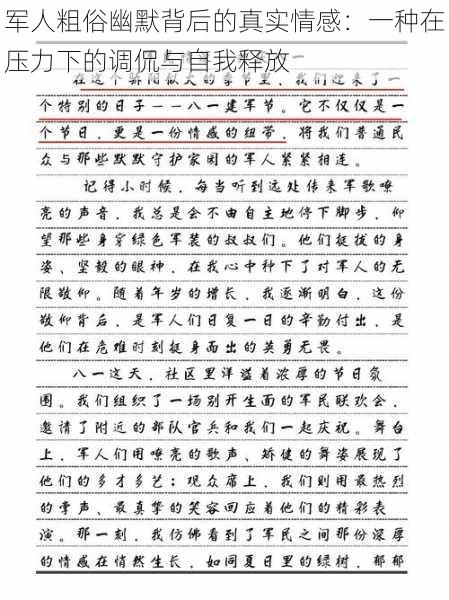 军人粗俗幽默背后的真实情感：一种在
压力下的调侃与自我释放
在这个骄阳似火的季节里，我们迎来了一
个特别的日子——八一建军节。它不仅仅是一
个节日，更是一份情感的纽带，将我们普通民
众与那些默默守护家园的军人紧紧相连。
记得小时候，每当听到远处传来军歌嘹
亮的声音，我总是会不由自主地停下脚步，仰
望那些身穿绿色军装的叔叔们。他们挺拔的身
姿、坚毅的眼神，在我心中种下了对军人的无
限敬仰。随着年岁的增长，我逐渐明白，这份
敬仰背后，是军人们日复一日的辛勤付出，是
他们在危难时刻挺身而出的英勇无畏。
八一这天，社区里洋溢着浓厚的节日氛
围。我们组织了一场别开生面的军民联欢会，
邀请了附近的部队官兵和我们一起庆祝。舞台
上，军人们用嘹亮的歌声、矫健的舞姿展现了
他们的多才多艺；观众席上，我们则用最热烈
的掌声、最真挚的笑容回应着他们的精彩表
演。那一刻，我仿佛看到了军民之间那份深厚
的情感在悄然生长，如同夏日里的绿树，郁郁